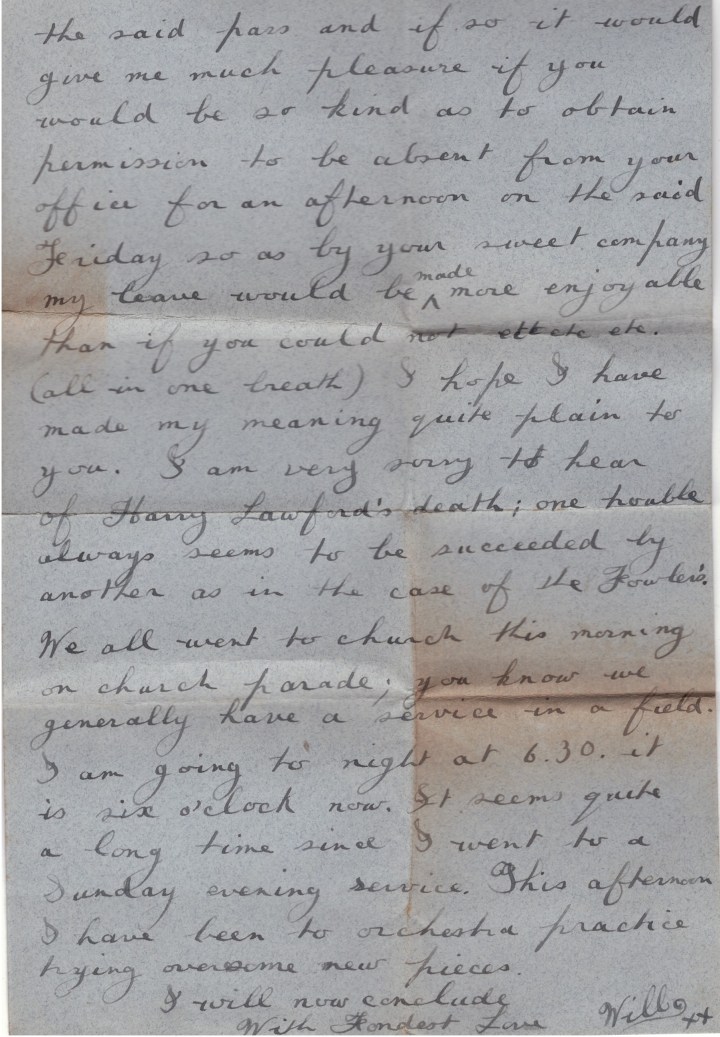 the said pass and if so it would
give me much pleasure if you
would be so kind as to obtain
permission to be absent from your
office for an afternoon on the said
Friday so as by your sweet company
my leave would be ^made more enjoyable
than if you could not etc etc etc.
(all in one breath) I hope I have
made my meaning quite plain to
you. I am very sorry to hear
of Harry Lawford's death; one trouble
always seems to be succeeded by
another as in the case of the Fowler's.
We all went to church this morning
on church parade; you know we
generally have a service in a field.
I am going to night at 6.30. it
is six o'clock now. It seems quite
a long time since I went to a
Sunday evening service. This afternoon
I have been to orchestra practice
trying over some new pieces.
I will now conclude
With Fondest Love Will xx